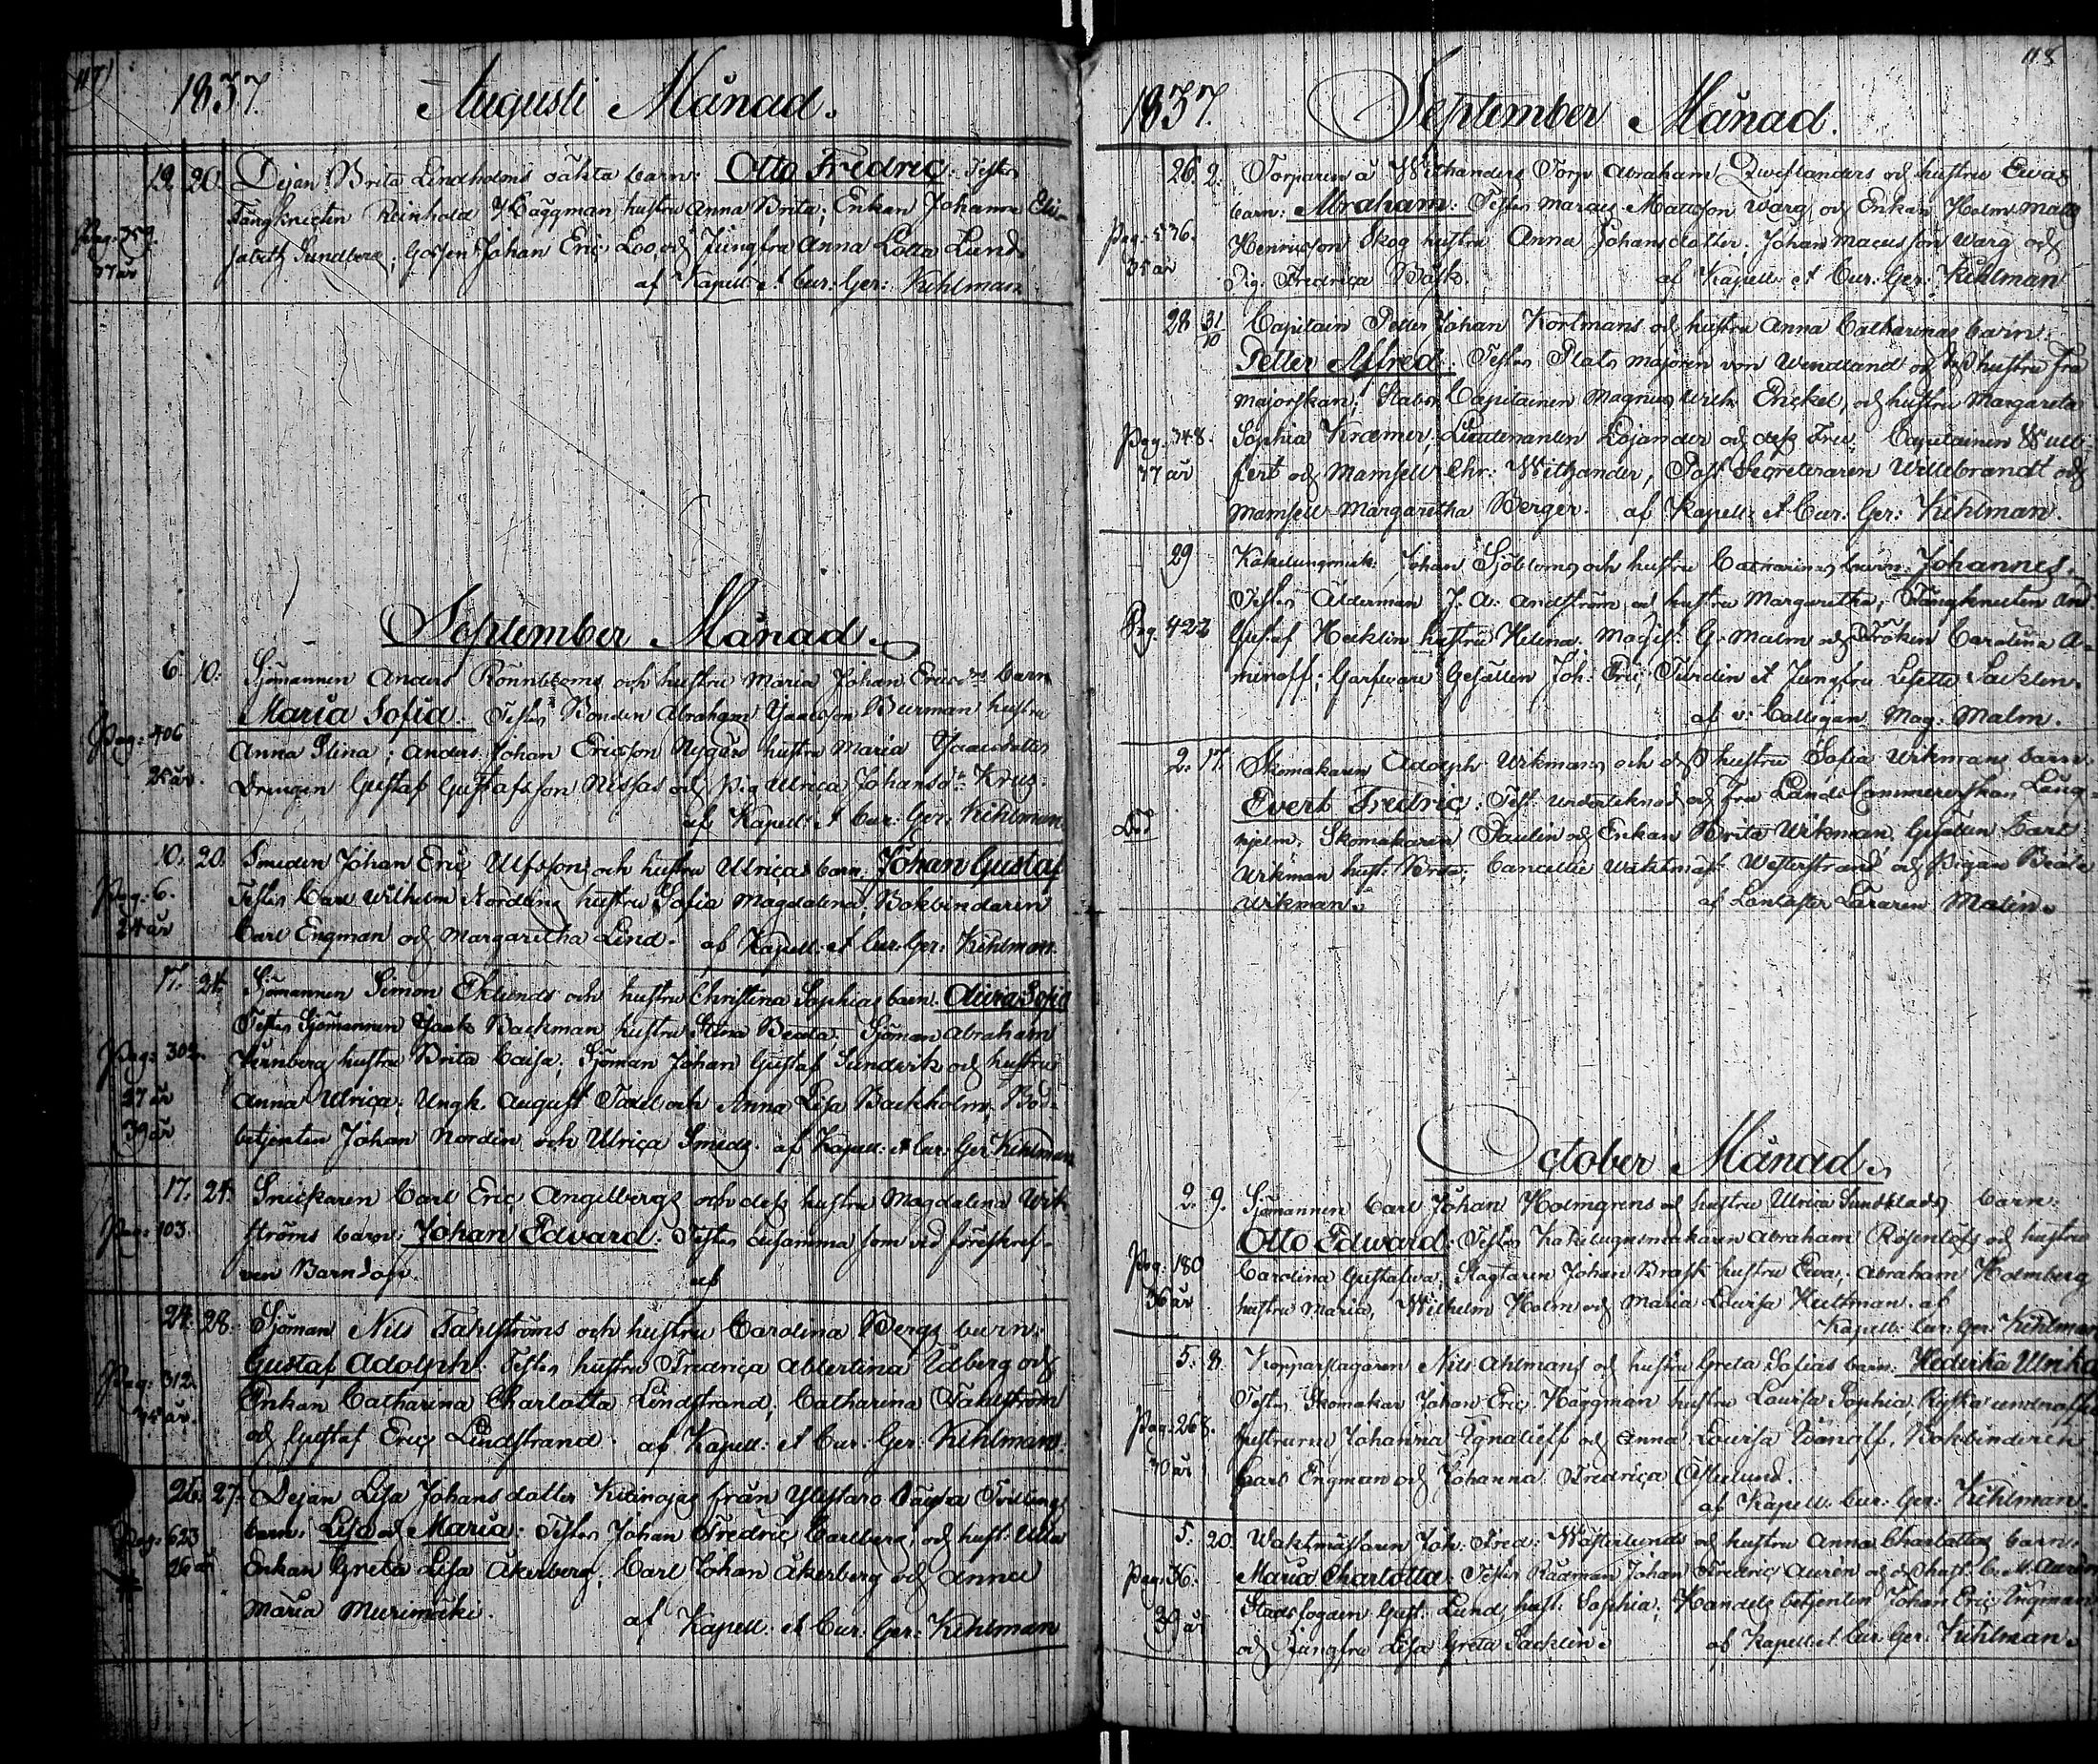 117
1837. Augusti Månad.
19. 20. Dejan Brita Lindholms oäkta barn: Otto Fredric. Testes
Fångknecten Reinhold Häggman, hustru Anna Brita, Enkan Johanna Eli-
Pag. 359. sabeth Sundberg; Gossen Johan Eric Loo, och Jungfru Anna Lotta Lund.
37 år af Kapell: et Cur: Ger: Kihlman
September Månad.
6. 10. Sjömannen Anders Rönnbloms och hustru Maria Johan Ericsd:rs barn
Maria Sofia. Testes Bonden Abraham Isacsson Burman hustru
Pag: 406 Anna Stina; Anders Johan Ericsson Nygård hustru Maria Isacsdotter
25 år. Drengen Gustaf Gustafsson Nissas och Pig. Ulrica Johansd:r Krus.
af Kapell: et Cur. Ger. Kihlman
10. 20. Smeden Johan Eric Ulfssons och hustru Ulricas barn. Johan Gustaf
Pag: 6. Testes Carl Wilhelm Nordling hustru Sofia Magdalena, Bokbindaren
24 år Carl Engman och Margaretha Lind. af Kapell: et Cur. Ger: Kihlman.
17. 24. Sjömannen Simon Eklunds och hustru Christina Sophias barn.
Testes Sjömannen Isak Backman hustru Stina Beata. Sjöman Abraham
Pag: 302. hustru Brita Caisa, Sjöman Johan Gustaf Sundvik och hustru
27 år Anna Ulrica. Ungk. August och Anna Lisa Backholm, Bod-
39 år betjenten Johan Nordin och Ulrica Smeds. af Kapell: et Cur: Ger Kihlman
17. 24. Snickaren Carl Eric Angelbergs och dess hustru Magdalena Wik-
Pag: 103 ströms barn: Johan Edvard. Testes desamma som vid föreskref-
ven Barndop. af
24. 28. Sjöman Nils Fahlströms och hustru Carolina Bergs barn:
Gustaf Adolph. Testes hustru Fredrica Albertina Udberg och
Pag: 312. Enkan Catharina Charlotta Lindstrand; Catharina Fahlström
35 år. och Gustaf Eric Lindstrand. af Kapell: et Cur. Ger: Kihlman.
25. 27. Dejan Lisa Johansdotter Kitinojas från Ylistaro oäkta Tvilling-
Pag. 623 barn. Lisa och Maria. Testes Johan Fredric Carlberg, och hust. Ulla
26 år Enkan Greta Lisa Åkerberg, Carl Johan Åkerberg och Anna
Maria Murimäki. af Kapell: et Cur. Ger: Kihlman
118
1837. September Månad.
26. 2. Torparen å Withanders Torp Abraham Qwistlanders och hustru Evas
barn: Abraham. Testes Marcus Mattsson Warg, och Enkan Holm Matts
Pag: 536. Henricsson Skog hustru Anna Johansdotter, Johan Marcusson Warg och
35 år Pig. Fredrica Bask. af Kapell: et Cur. Ger: Kihlman
28 31/10 Capitain Petter Johan Kortmans och hustru Anna Catharinas barn:
Petter Alfred. Testes Plats Majoren von Wendland och dess hustru Fru
Majorskan; Stabs Capitainen Magnus Wilh. Enckel, och hustru Margareta
Pag: 348. Sophia Kræmer; Lieutenanten Lojander och dess Fru. Capitainen Wulf-
37 år fert och Mamsell Chr: Withander, Post Secreteraren Willebrandt och
Mamsell Margaretha Berger. af Kapell: et Cur: Ger: Kihlman.
29 Kakelungmak: Johan Sjöbloms och hustru Catharinas barn. Johannes.
Testes Ålderman J. A. Andström och hustru Margaretha; Fångknecten And
Pag. 422 Gustaf Hecklin hustru Helena. Magist: G. Malm och Fröken Carolina A-
minoff; Garfvare Gesällen Joh: Eric Turdin et Jungfru Lisette Sacklen.
af v. Collegan Mag: Malm.
2. 17. Skomakaren Adolph Wikmans och dess hustru Sofia Wikmans barn
Evert Fredric. Test. undertecknad och Fru Lands Cammererskan Lång-
Död hjelm, Skomakaren Paulin och Enkan Brita Wikman, Gesällen Carl
Wikman hust. Brita; Cancellie Waktmäst: Westerstrand och Pigan Beata
Wikman. af Lancaster Läraren Malin.
October Månad.
2. 9. Sjömannen Carl Johan Holmgrens och hustru Ulrica Sundblads barn:
Otto Edward: Testes Kakelugnsmakaren Abraham Rosenlöf och hustru
Pag: 180 Carolina Gustafwa, Slagtaren Johan Brask hustru Eva, Abraham Holmberg
36 år hustru Maria, Wilhelm Holm och Maria Lovisa Hultman. af
Kapell: Cur: Ger: Kihlman
5. 8. Kopparslagaren Nils Ahlmans och hustru Greta Sofias barn: Hedvika Ulrika
Testes Skomakar Johan Eric Häggman hustru Lovisa Sophia, Ryska
Pag. 268. hustrurna Johanna Ignatieff och Anna Lovisa Bokbinderen
30 år Carl Engman och Johanna Fredrica
af Kapell: Cur: Ger: Kihlman.
5. 20. Waktmästaren Joh: Fred: Wästerlunds och hustru Anna Charlottas barn.
Pag. 36. Maria Charlotta. Testes Rådman Johan Fredric Aurén och dess hust. C. M. Aurén
39 år Stadsfogden Gust. Lund, hust: Sophia, Handels betjenten Johan Eric Ingman
och Jungfru Lisa Greta Sacklin. af Kapell: et Cur Ger: Kihlman.